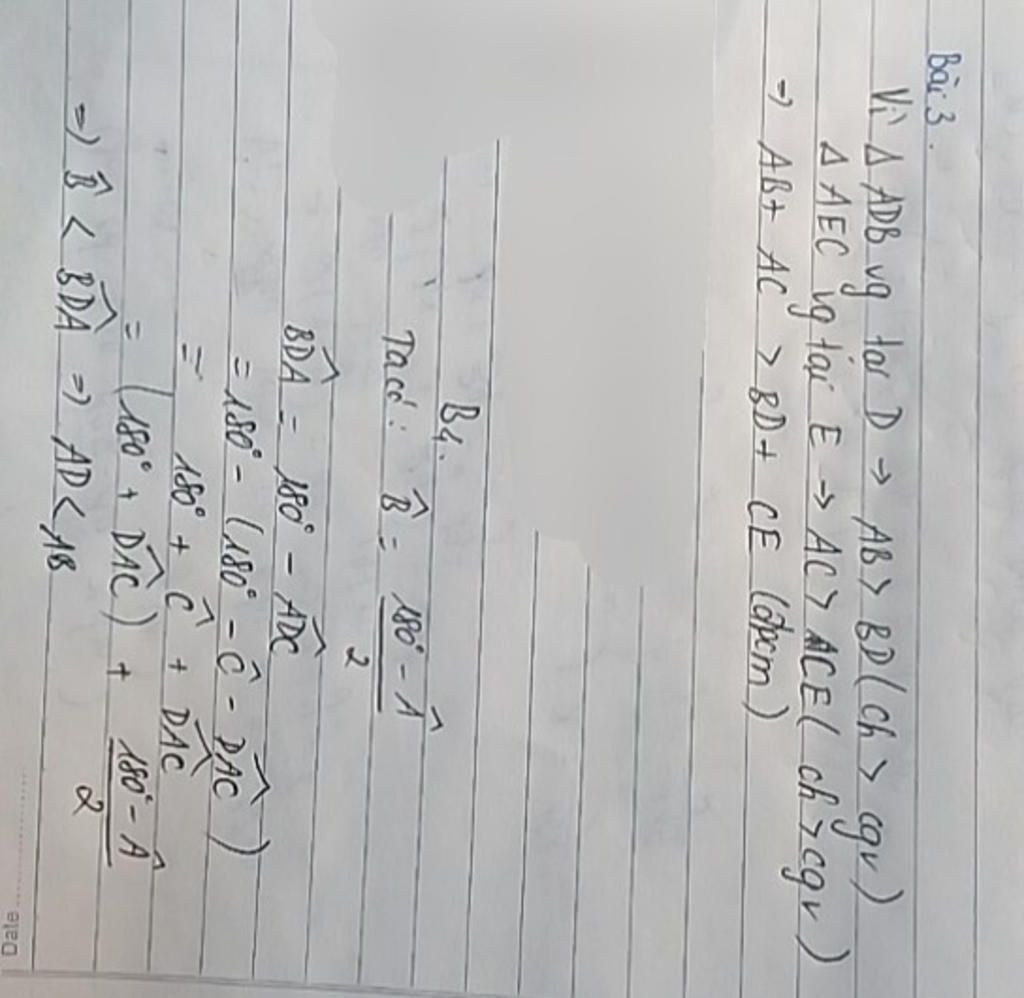 Bài 3.
Vì Δ ADB vg tại D → AB > BD (ch > cgv)
Δ AEC vg tại E → AC > ACE ( ch > cgv )
⇒ AB + AC > BD + CE (đpcm)
B4.
Ta có: B̂ = (180° - Â)/2
BDÂ = 180° - ADĈ
= 180° - (180° - Ĉ - DAĈ)
= 180° + Ĉ + DAĈ
= (180° + DAĈ) + (180° - Â)/2
⇒ B̂ < BDÂ ⇒ AD < AB
Date